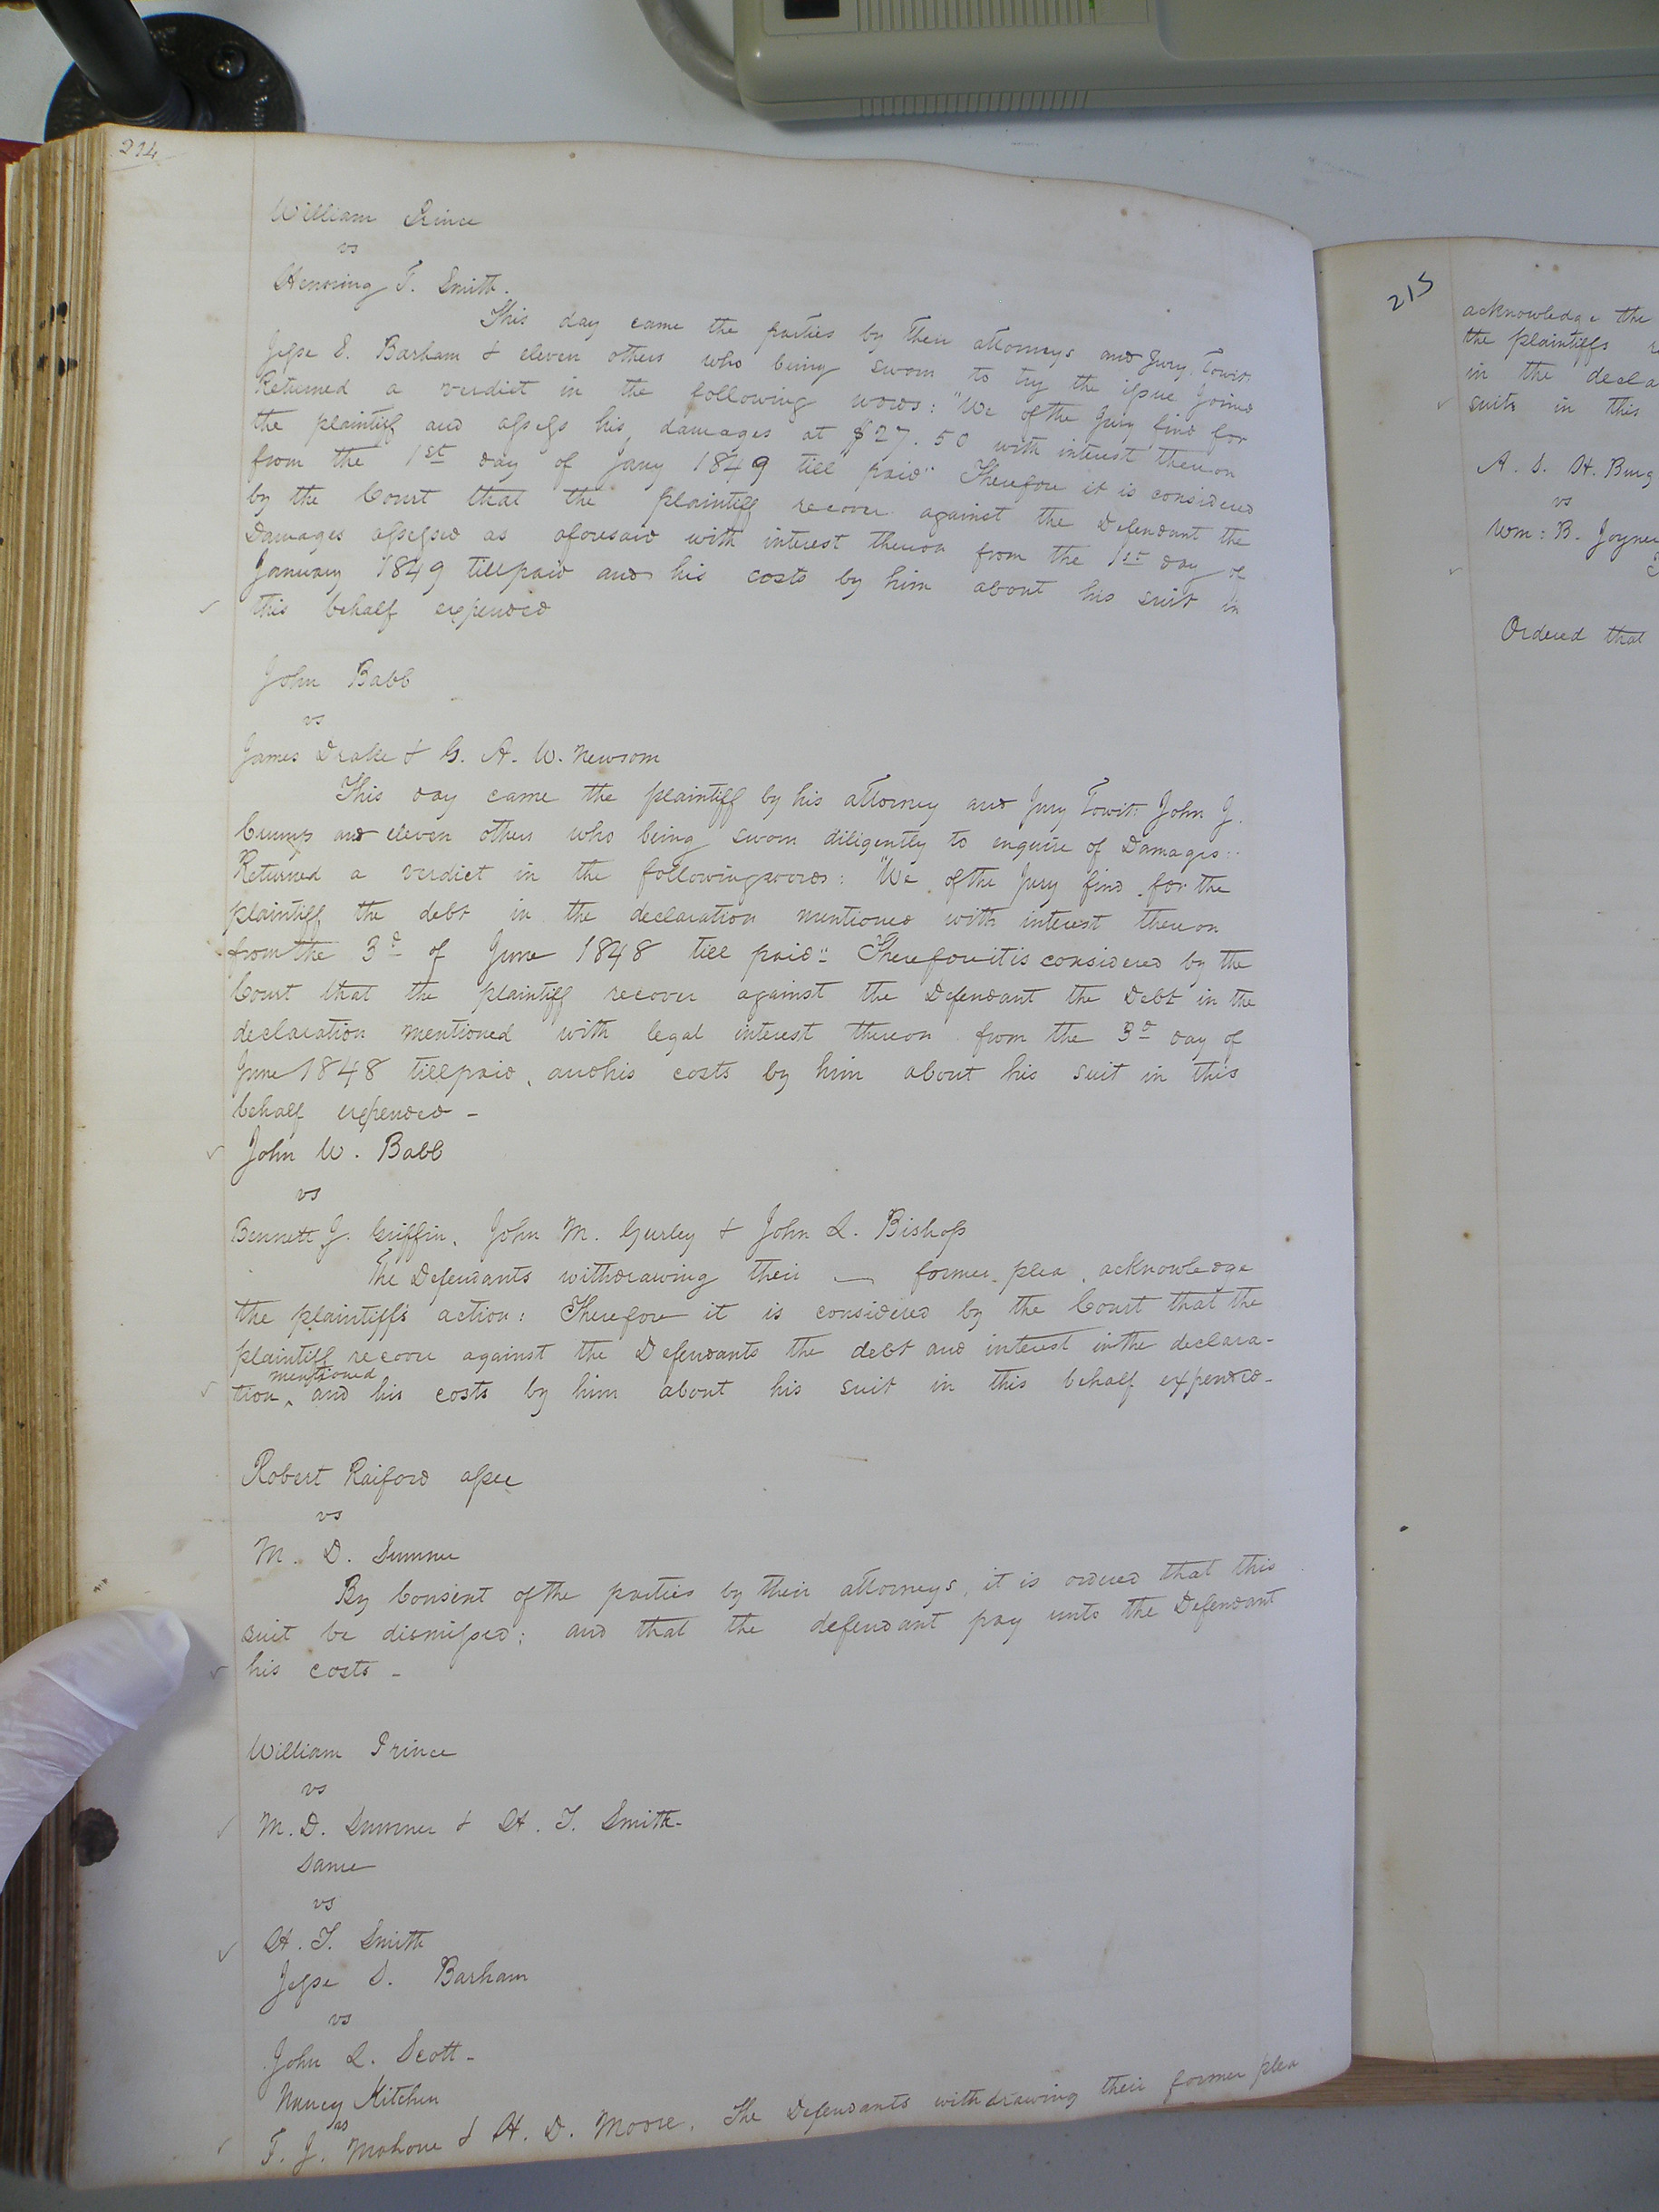 214
William Prince
vs
Henning T. Smith.
This day came the parties by their attorneys and Jury, Towit:
Jesse S. Barham & eleven others who being sworn to try the issue Joined
Returned a verdict in the following words: "We of the Jury find for
the plaintiff and assess his damages at $27.50 with interest thereon
from the 1st day of Jany 1849 till paid" Therefore it is considered
by the Court that the plaintiff recover against the Defendant the
Damages assessed as aforesaid with interest thereon from the 1st day of
January 1849 till paid and his costs by him about his suit in
this behalf expended
John Babb
vs
James Drake & G. A. W. Newsom
This day came the plaintiff by his attorney and Jury Towit: John J.
Crumps and eleven others who being sworn diligently to enquire of Damages:
Returned a verdict in the following words: "We of the Jury find for the
plaintiff the debt in the declaration mentioned with interest thereon
from the 3d of June 1848 till paid" Therefore it is considered by the
Court that the plaintiff recover against the Defendant the Debt in the
declaration mentioned with legal interest thereon from the 3d day of
June 1848 till paid, and his costs by him about his suit in this
behalf expended -
John W. Babb
vs
Bennett J. Griffin, John M. Gurley & John L. Bishop
The Defendants withdrawing their — former plea, acknowledge
the plaintiffs action: Therefore it is considered by the Court that the
plaintiff recover against the Defendants the debt and interest in the declara-
mentioned
tion, and his costs by him about his suit in this behalf expended-
Robert Raiford assee
vs
M. D. Sumner
By Consent of the parties by their attorneys, it is ordered that this
suit be dismissed; and that the defendant pay unto the Defendant
his costs -
William Prince
vs
M. D. Sumner & H. T. Smith-
Same
vs
H. T. Smith
Jesse S. Barham
vs
John L. Scott-
Nancy Kitchen
vs
T. J. Mahone & H. D. Moore. The Defendants withdrawing their former plea
215
acknowledge the
the plaintiffs
in the decla
suits in this
A. S. H. Burg
vs
Wm: B. Joyner
Ordered that